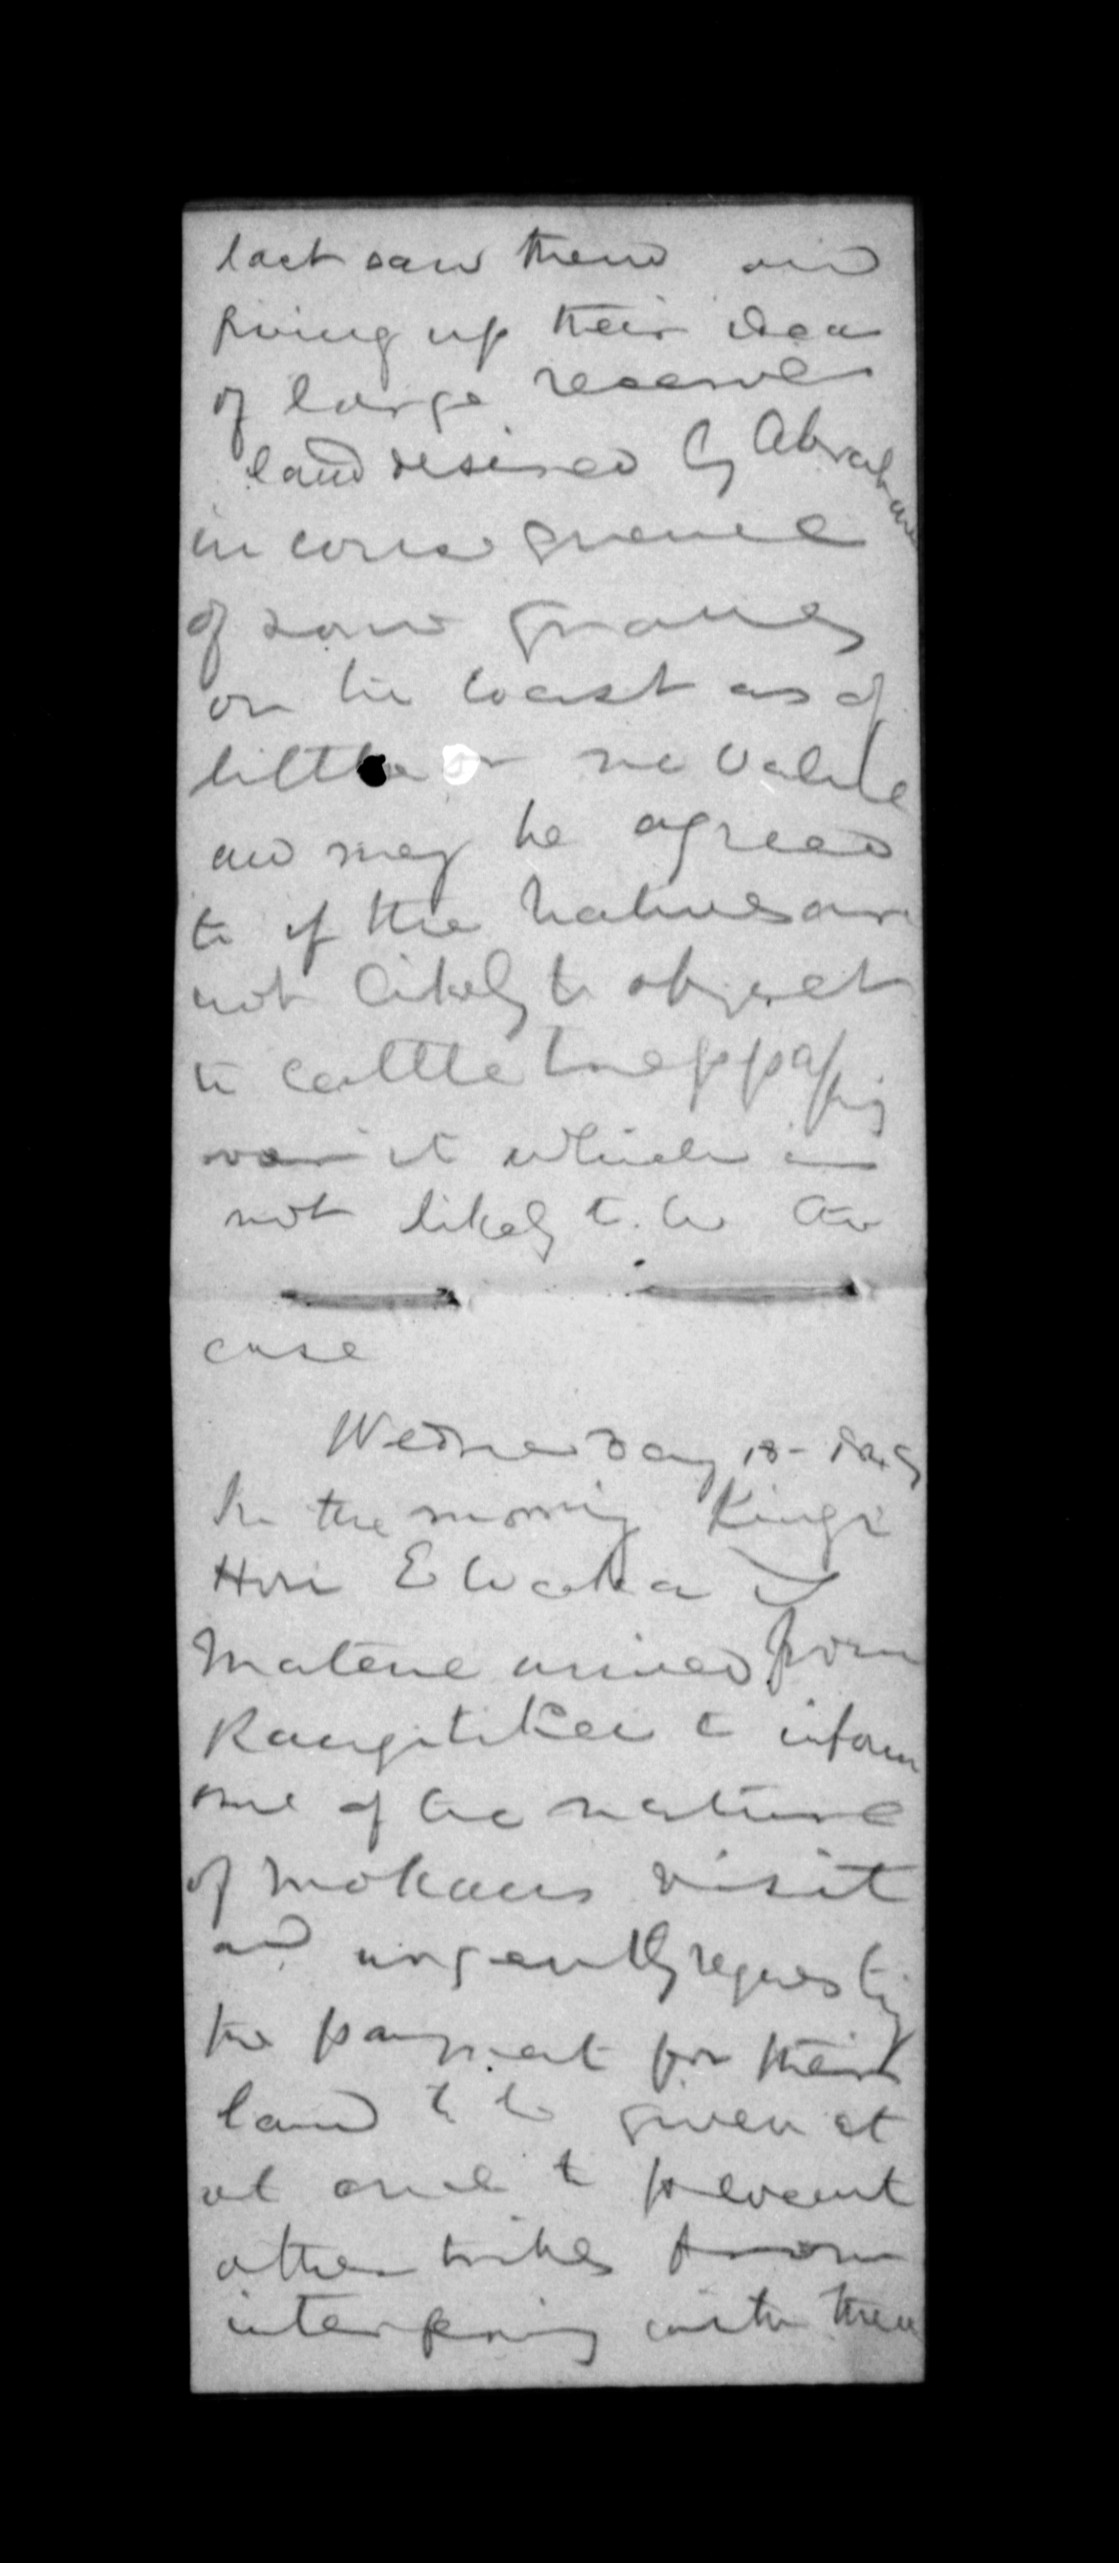 last saw them and
giving up their idea
of large reserves
land desired by Abraham
in consequence
of some graves
on the coast as of
little or no value
and may be agreed
to if the natives are
not likely to object
to cattle trespassing
it which is
not likely to be the
case
Wednesday 18 -
In the morning Kingi
Hori E Waka &
Matene arrived from
Rangitikei to inform
me of the nature
of Mokaus visit
and urgently requesting
the payment for their
land to be given at
at once to prevent
other tribes from
interfering with them